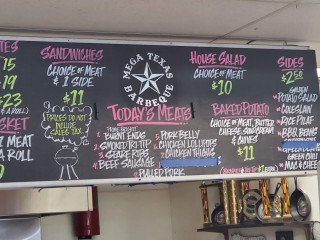 TES
15
19
$23
& A ROLL)
SKET
MEAT
A ROLL
SANDWICHES
CHOICE OF MEAT
& 1 SIDE
$11
(PRICES DO NOT
INCLUDE
SALES TAX)
MEGA TEXAS
BARBEQUE
TODAY'S MEATS
1. BURNT ENDS
2. SMOKED TRI TIP
3. SPARE RIBS
4. BEEF SAUSAGE
5. PORK BELLY
6. CHICKEN LOLLIPOPS
7. CHICKEN THIGHS
PULLED PORK
HOUSE SALAD
CHOICE OF MEAT
$10
BAKED POTATO
CHOICE OF MEAT, BUTTER
CHEESE, SOUR CREAM
& CHIVES
$11
SIDES
$2.50
POTATO SALAD
COLESLAW
RICE PILAF
BBQ BEANS
GREEN CHILI
MAC & CHEESE